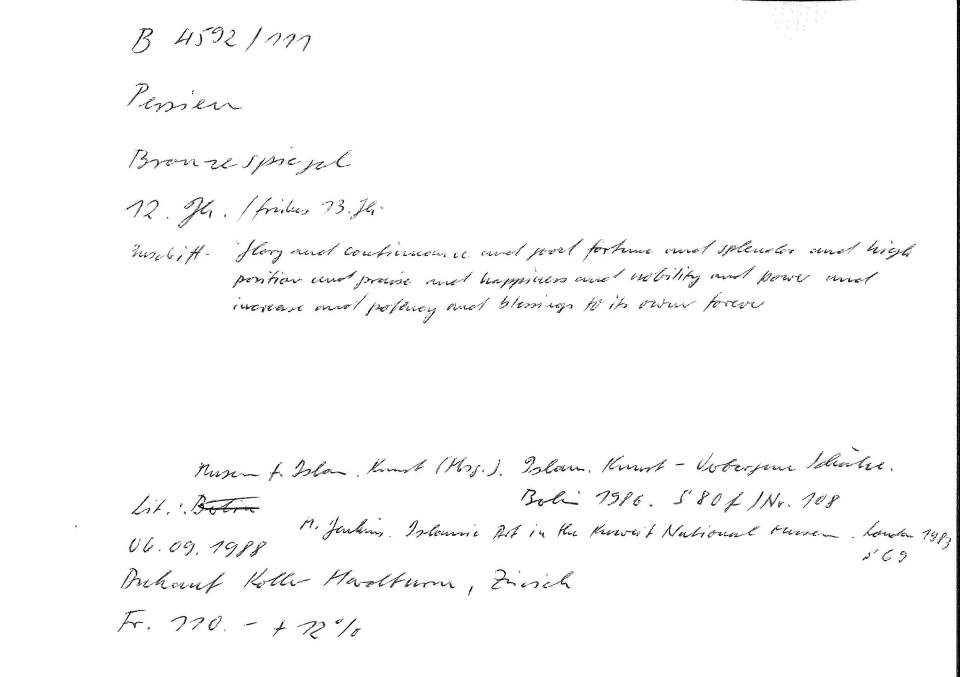 B 4592/111
Persien
Bronzespiegel
12. Jh. / frühes 13. Jh.
Inschrift: Glory and continuance and good fortune and splendor and high
position and praise and happiness and nobility and power and
increase and potency and blessings to its owner forever
Museum f. Islam. Kunst (Hrsg.). Islam. Kunst - Verborgene Schätze.
Lit.: Berlin Berlin 1986. S 80 f / Nr. 108
M. Jenkins. Islamic Art in the Kuwait National Museum. London 1983
06.09.1988 S 69
Ankauf Koller Hardturm, Zürich
Fr. 110.- + 12%